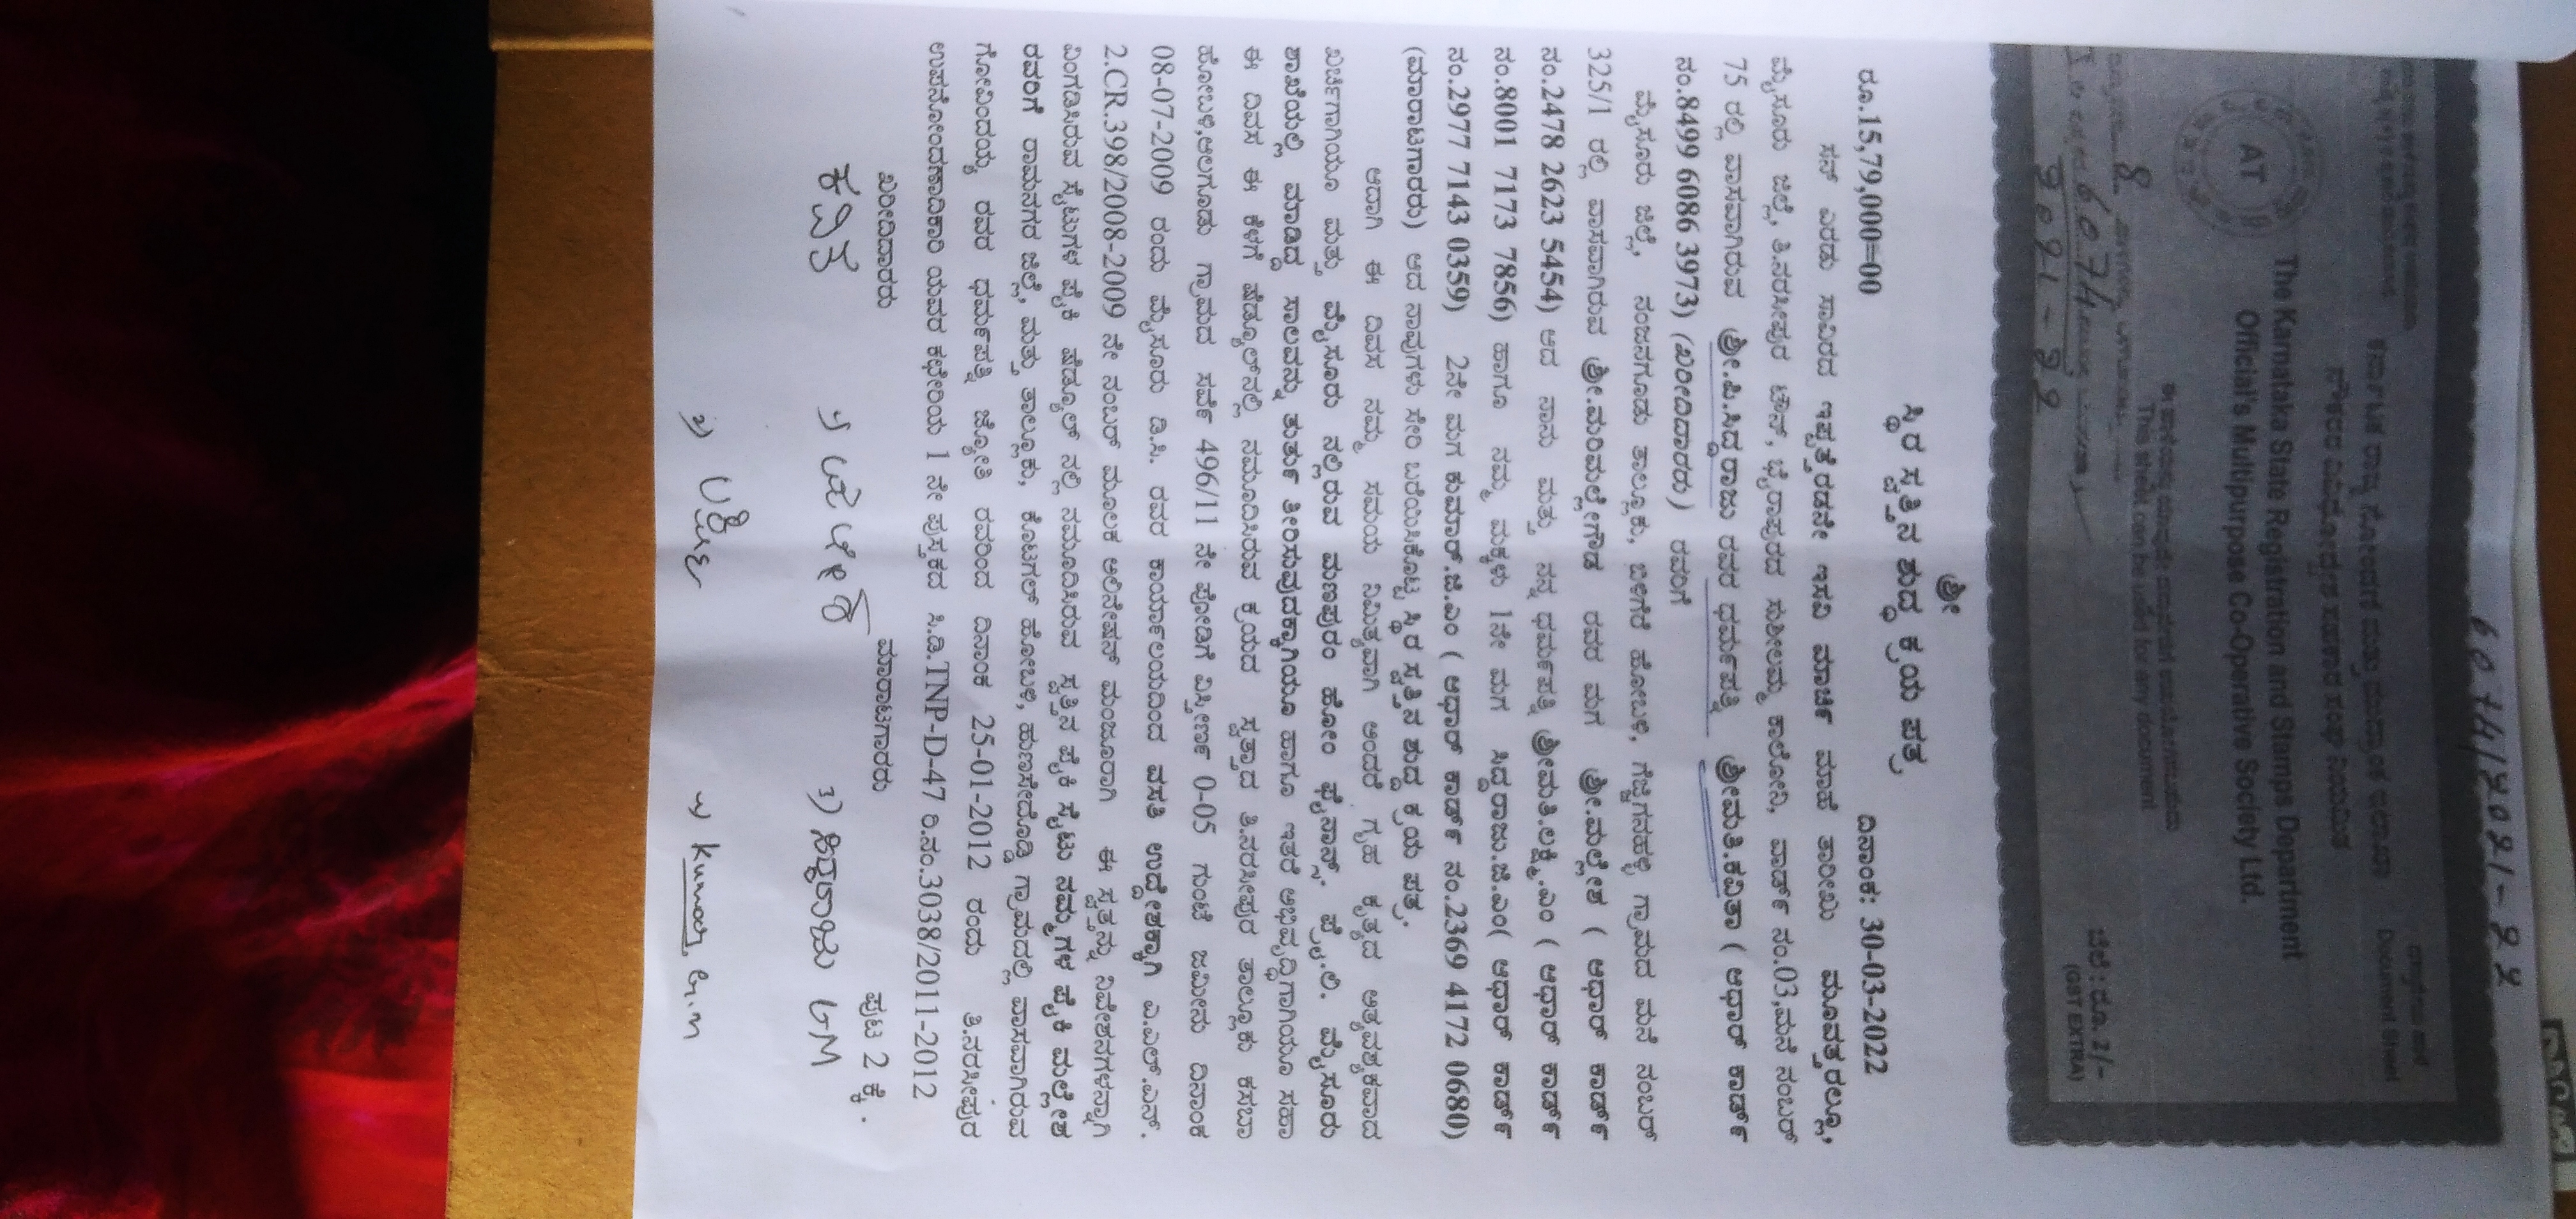 6074/2021-22
ದಸ್ತಾವೇಜು ಹಾಳೆ
Document Sheet
ಕರ್ನಾಟಕ ರಾಜ್ಯ ನೋಂದಣಿ ಮತ್ತು ಮುದ್ರಾಂಕ ಇಲಾಖಾ
ನೌಕರರ ವಿವಿಧೋದ್ದೇಶ ಸಹಕಾರ ಸಂಘ ನಿಯಮಿತ
The Karnataka State Registration and Stamps Department
Official's Multipurpose Co-Operative Society Ltd.
AT
This sheet can be used for any document
ಬೆಲೆ : ರೂ. 2/-
(GST EXTRA)
8
6074
2021-22
ಶ್ರೀ
ಸ್ಥಿರ ಸ್ವತ್ತಿನ ಶುದ್ಧ ಕ್ರಯ ಪತ್ರ
ರೂ.15,79,000=00 ದಿನಾಂಕ: 30-03-2022
ಸನ್ ಎರಡು ಸಾವಿರದ ಇಪ್ಪತ್ತೆರಡನೇ ಇಸವಿ ಮಾರ್ಚಿ ಮಾಹೆ ತಾರೀಖು ಮೂವತ್ತರಲ್ಲೂ,
ಮೈಸೂರು ಜಿಲ್ಲೆ, ತಿ.ನರಸೀಪುರ ಟೌನ್, ಭೈರಾಪುರದ ಸುಶೀಲಮ್ಮ ಕಾಲೋನಿ, ವಾರ್ಡ್ ನಂ.03,ಮನೆ ನಂಬರ್
75 ರಲ್ಲಿ ವಾಸವಾಗಿರುವ ಶ್ರೀ.ಪಿ.ಸಿದ್ದರಾಜು ರವರ ಧರ್ಮಪತ್ನಿ ಶ್ರೀಮತಿ.ಕವಿತಾ ( ಆಧಾರ್ ಕಾರ್ಡ್
ನಂ.8499 6086 3973) (ಖರೀದಿದಾರರು) ರವರಿಗೆ
ಮೈಸೂರು ಜಿಲ್ಲೆ, ನಂಜನಗೂಡು ತಾಲ್ಲೂಕು, ಬಿಳಿಗೆರೆ ಹೋಬಳಿ, ಗೆಜ್ಜಿಗನಹಳ್ಳಿ ಗ್ರಾಮದ ಮನೆ ನಂಬರ್
325/1 ರಲ್ಲಿ ವಾಸವಾಗಿರುವ ಶ್ರೀ.ಮರಿಮಲ್ಲೇಗೌಡ ರವರ ಮಗ ಶ್ರೀ.ಮಲ್ಲೇಶ ( ಆಧಾರ್ ಕಾರ್ಡ್
ನಂ.2478 2623 5454) ಆದ ನಾನು ಮತ್ತು ನನ್ನ ಧರ್ಮಪತ್ನಿ ಶ್ರೀಮತಿ.ಲಕ್ಷ್ಮಿ.ಎಂ ( ಆಧಾರ್ ಕಾರ್ಡ್
ನಂ.8001 7173 7856) ಹಾಗೂ ನಮ್ಮ ಮಕ್ಕಳು 1ನೇ ಮಗ ಸಿದ್ದರಾಜು.ಜಿ.ಎಂ( ಆಧಾರ್ ಕಾರ್ಡ್
ನಂ.2977 7143 0359) 2ನೇ ಮಗ ಕುಮಾರ್.ಜಿ.ಎಂ ( ಆಧಾರ್ ಕಾರ್ಡ್ ನಂ.2369 4172 0680)
(ಮಾರಾಟಗಾರರು) ಆದ ನಾವುಗಳು ಸೇರಿ ಬರೆಯಿಸಿಕೊಟ್ಟ ಸ್ಥಿರ ಸ್ವತ್ತಿನ ಶುದ್ಧ ಕ್ರಯ ಪತ್ರ.
ಅದಾಗಿ ಈ ದಿವಸ ನಮ್ಮ ಸಮಯ ನಿಮಿತ್ತವಾಗಿ ಅಂದರೆ ಗೃಹ ಕೃತ್ಯದ ಅತ್ಯವಶ್ಯಕವಾದ
ಖರ್ಚಿಗಾಗಿಯೂ ಮತ್ತು ಮೈಸೂರು ನಲ್ಲಿರುವ ಮಣಪುರಂ ಹೋಂ ಫೈನಾನ್ಸ್, ಪ್ರೈ.ಲಿ. ಮೈಸೂರು
ಶಾಖೆಯಲ್ಲಿ ಮಾಡಿದ್ದ ಸಾಲವನ್ನು ತುರ್ತು ತೀರಿಸುವುದಕ್ಕಾಗಿಯೂ ಹಾಗೂ ಇತರೆ ಅಭಿವೃದ್ಧಿಗಾಗಿಯೂ ಸಹಾ
ಈ ದಿವಸ ಈ ಕೆಳಗೆ ಷೆಡ್ಯೂಲ್‌ನಲ್ಲಿ ನಮೂದಿಸಿರುವ ಕ್ರಯದ ಸ್ವತ್ತಾದ ತಿ.ನರಸೀಪುರ ತಾಲ್ಲೂಕು ಕಸಬಾ
ಹೋಬಳಿ,ಆಲಗೂಡು ಗ್ರಾಮದ ಸರ್ವೆ 496/11 ನೇ ಪೋಡಿಗೆ ವಿಸ್ತೀರ್ಣ 0-05 ಗುಂಟೆ ಜಮೀನು ದಿನಾಂಕ
08-07-2009 ರಂದು ಮೈಸೂರು ಡಿ.ಸಿ. ರವರ ಕಾರ್ಯಾಲಯದಿಂದ ವಸತಿ ಉದ್ದೇಶಕ್ಕಾಗಿ ಎ.ಎಲ್.ಎನ್.
2.CR.398/2008-2009 ನೇ ನಂಬರ್ ಮೂಲಕ ಅಲಿನೇಷನ್ ಮಂಜೂರಾಗಿ ಈ ಸ್ವತ್ತನ್ನು ನಿವೇಶನಗಳನ್ನಾಗಿ
ವಿಂಗಡಿಸಿರುವ ಸೈಟುಗಳ ಪೈಕಿ ಷೆಡ್ಯೂಲ್ ನಲ್ಲಿ ನಮೂದಿಸಿರುವ ಸ್ವತ್ತಿನ ಪೈಕಿ ಸೈಟು ನಮ್ಮಗಳ ಪೈಕಿ ಮಲ್ಲೇಶ
ರವರಿಗೆ ರಾಮನಗರ ಜಿಲ್ಲೆ, ಮತ್ತು ತಾಲ್ಲೂಕು, ಕೊಟಗಲ್ ಹೋಬಳಿ, ಹುಣಸೇದೊಡ್ಡಿ ಗ್ರಾಮದಲ್ಲಿ ವಾಸವಾಗಿರುವ
ಗೋವಿಂದಯ್ಯ ರವರ ಧರ್ಮಪತ್ನಿ ಜ್ಯೋತಿ ರವರಿಂದ ದಿನಾಂಕ 25-01-2012 ರಂದು ತಿ.ನರಸೀಪುರ
ಉಪನೋಂದಣಾದಿಕಾರಿ ಯವರ ಕಛೇರಿಯ 1 ನೇ ಪುಸ್ತಕದ ಸಿ.ಡಿ.TNP-D-47 ರಿ.ನಂ.3038/2011-2012
ಖರೀದಿದಾರರು ಮಾರಾಟಗಾರರು ಪುಟ 2 ಕ್ಕೆ.
ಕವಿತ 3) ಸಿದ್ದರಾಜು GM
2) ಲಕ್ಷ್ಮೀ 4) Kumar G.M